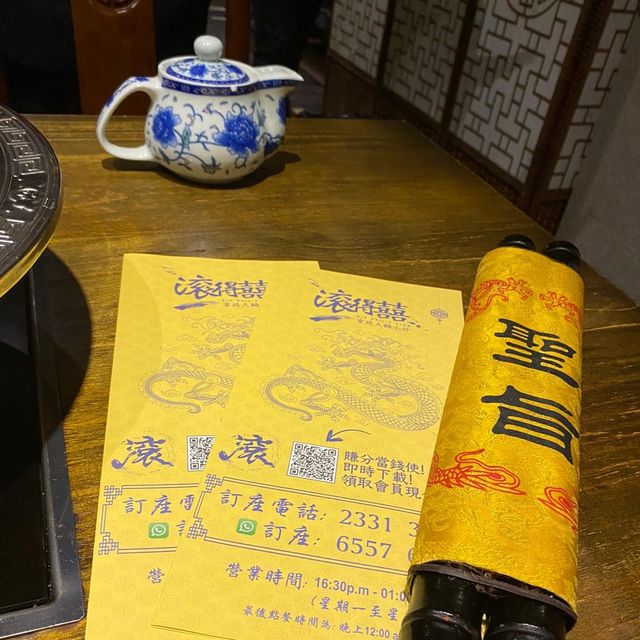 滾得囍
宮廷火鍋
滾
訂座電
訂
營
滾得囍
宮廷火鍋小炒
滾
賺分當錢使!
即時下載!
領取會員現
訂座電話: 2331 3
訂座: 6557 6
營業時間: 16:30p.m - 01:0
(星期一至星
最後點餐時間為: 晚上12:00 a
聖旨